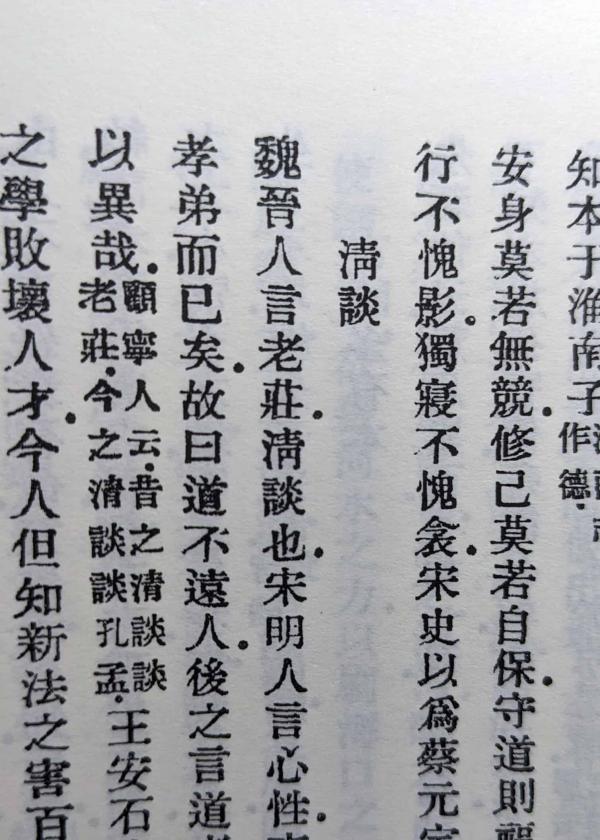 知本于淮南子作德
安身莫若無競。修己莫若自保。守道則福
行不愧影。獨寢不愧衾。宋史以爲蔡元定
淸談
魏晉人言老莊。淸談也。宋明人言心性。
孝弟而已矣。故曰道不遠人。後之言道
以異哉。顧寧人云。昔之清談談老莊。今之清談談孔孟。王安石
之學敗壞人才。今人但知新法之害百